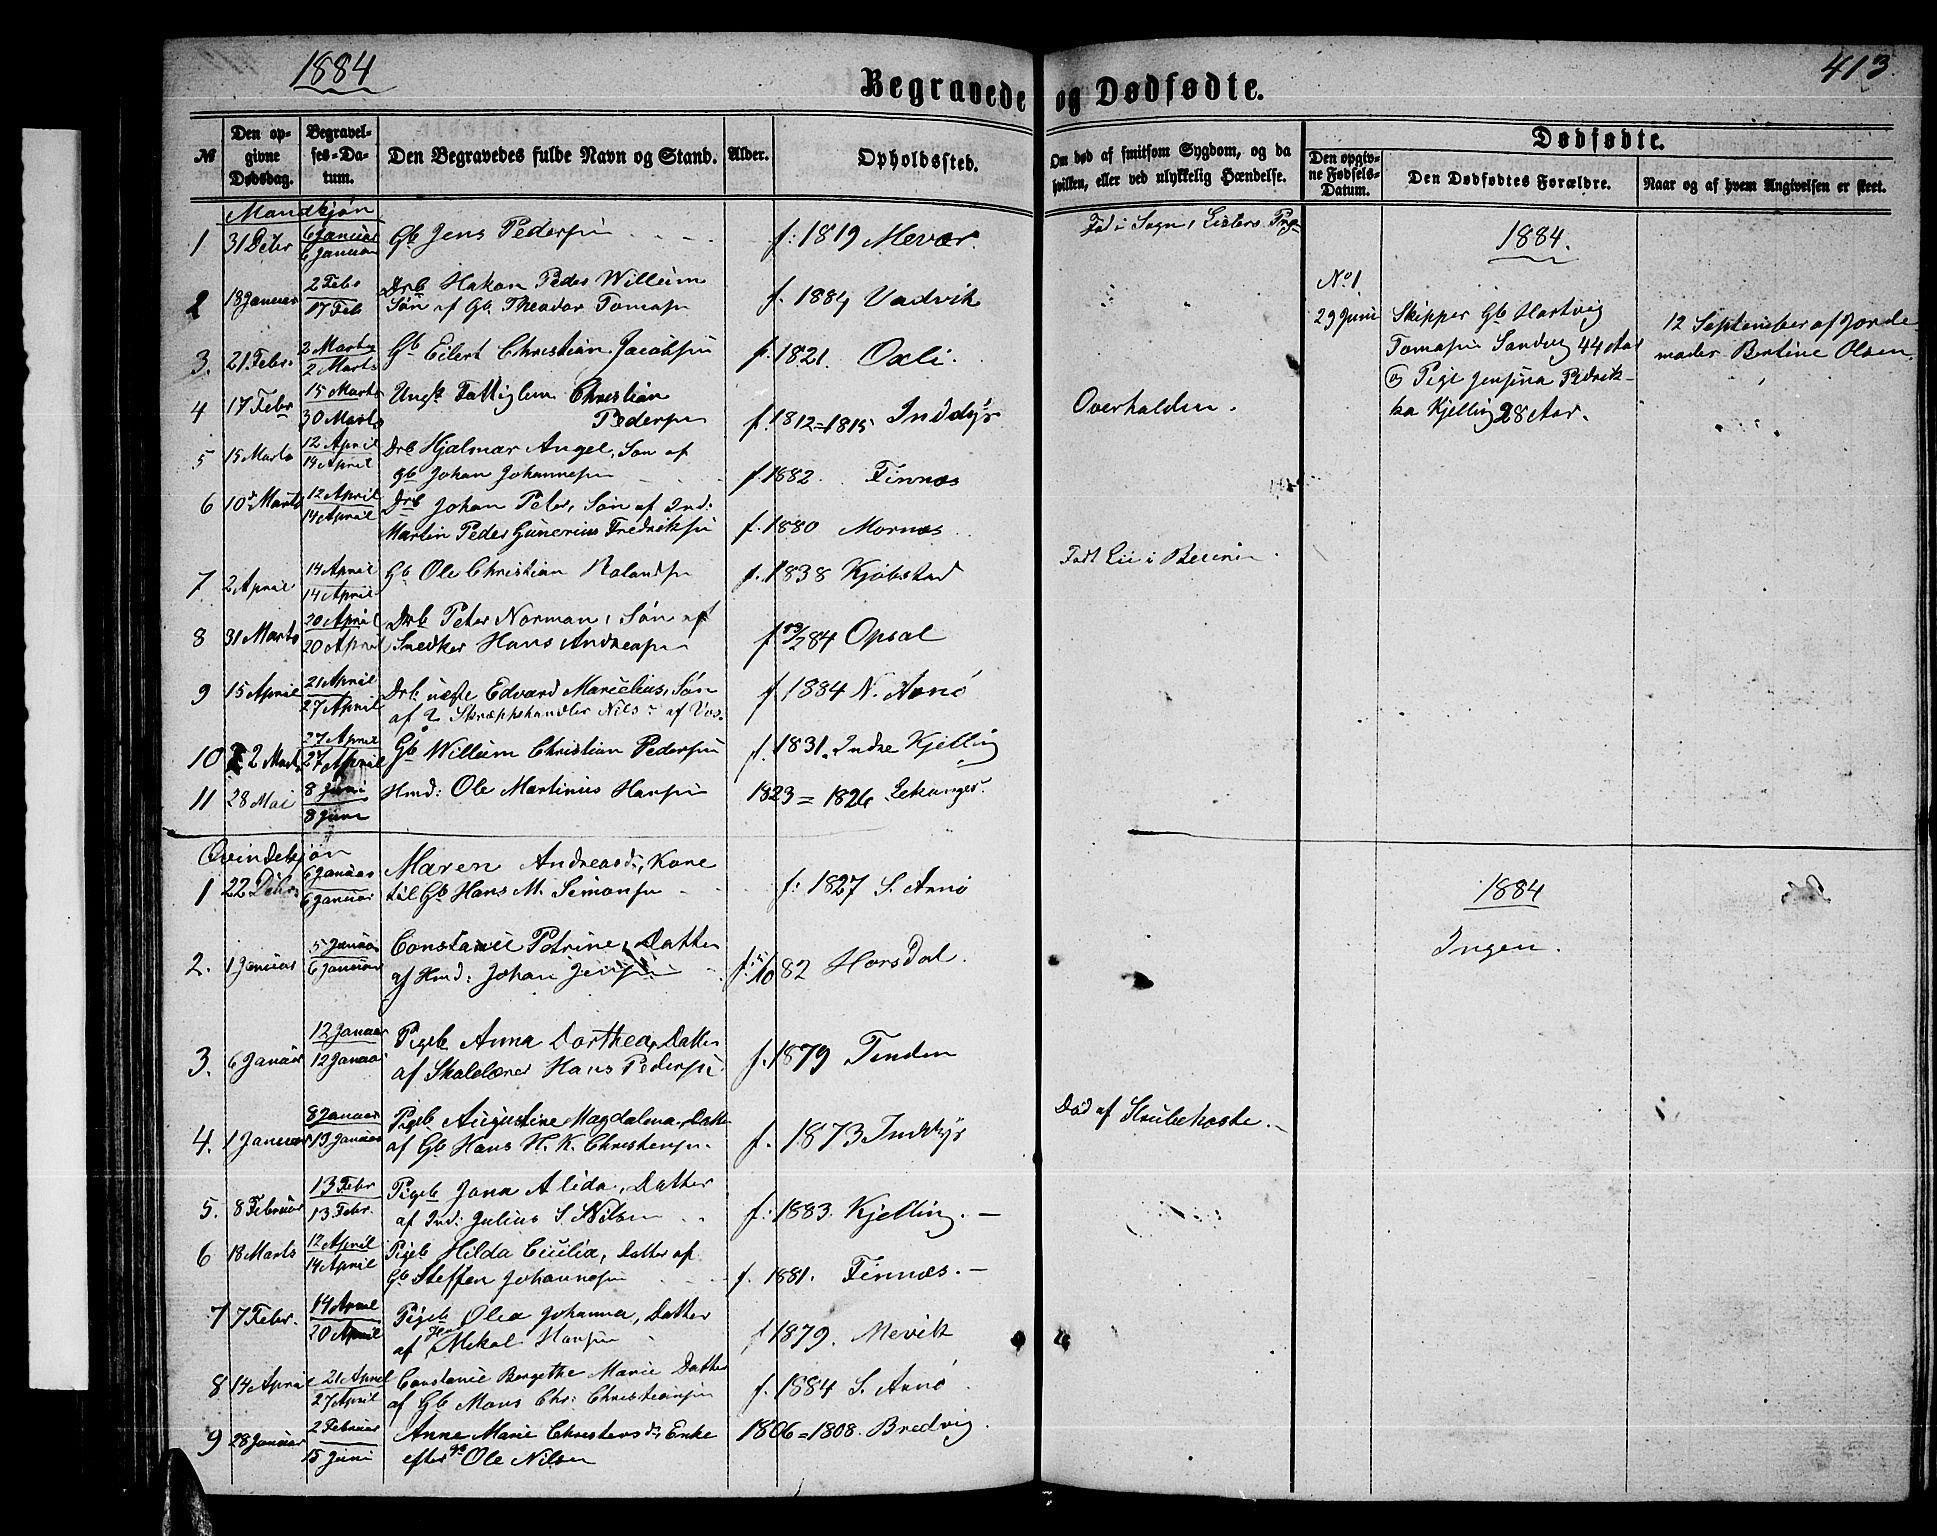 1884
413
Begravede og Dødfødte.
№
Den opgivne Dødsdag.
Begravelses-Datum.
Den Begravedes fulde Navn og Stand.
Alder.
Opholdssted.
Om død af smitsom Sygdom, og da hvilken, eller ved ulykkelig Hændelse.
Dødfødte.
Den opgivne Fødsels-Datum.
Den Dødfødtes Forældre.
Naar og af hvem Angivelsen er skeet.
Mandkjøn
1 31 Debr 6 Januar 6 Januar Gb Jens Pedersen f: 1819 Mevær.
2 18 Januar 2 Febr 17 Feb Drb Hakon Peder Willum
Søn af Gb. Theodor Tomasen f. 1884 Vadvik
3. 21 Febr. 2 Marts 2 Marts Gb Eilert Christian Jacobsen f. 1821. Oxli.
4 17 Febr 15 Marts 30 Marts Ungk Fattiglem Christian
Pedersen f. 1812=1815 Inddyr Overhalden.
5 15 Marts 12 April 14 April Drb Hjalmar Angel, Søn af
Gb Johan Johannesen f. 1882. Finnæs
6 10 Marts 12 April 14 April Drb Johan Peter, Søn af Ind:
Martin Peder Gunerius Fredriksen f. 1880 Mornæs
7. 2 April 14 April 14 April Gb Ole Christian Rolandsen f. 1838 Kjøbstad Født Lii i Beieren
8 31 Marts 20 April 20 April Drb Peter Norman, Søn af
Snedker Hans Andreasen f 84 Opsal
9 15 April 21 April 27 April Drb uægte Edvard Marcelius, Søn
af Skræppehandler Nils af Vos. f 1884 N. Arnø
10 2 Marts 27 April 27 April Gb Willum Christian Pedersen f. 1831. Indre Kjelling
11 28 Mai 8 Juni 8 Juni Hmd: Ole Martinus Hansen 1823=1826
1884.
No 1
29 Juni Skipper Gb Hartvig
Tomasen Sandvig 44 Aar
og Pige Jensina Pedrik-
ka Kjelling 28 Aar.
12 September af Jorde-
moder Bertine Olsen.
Qvindekjøn
1 22 Debr. 6 Januar 6 Januar Maren Andreasd:, Kone
til Gb Hans M. Simonsen f: 1827 S. Arnø
2. 1 Januar 5 Januar 6 Januar Constance Petrine, Datter
af Hmd: Johan Jensen f. 82 Horsdal.
3. 6 Januar 12 Januar 12 Januar Pigeb Anna Dorthea, Datter
af Skolelærer Hans Pedersen f. 1879 Tinden
4. 1 Januar 8 Januar 13 Januar Pigeb Augustine Magdalena, Datt
af Gb Hans H. K. Christensen. f. 1873 Inddyr Død af Strubehoste.
5. 8 Februar 13 Febr 13 Febr. Pigeb Jana Alida, Datter
af Ind: Julius S. Nilsen f: 1883. Kjelling.
6 18 Marts 12 April 14 April Pigeb Hilda Cecilia, Datter af
Gb Steffen Johannesen f. 1881. Finnæs.
7 7 Febr. 14 April 20 April Pigeb Olea Johanna, Datter
af Mikal Hansen f 1879. Mevik
8 14 April 21 April 27 April Constance Bergethe Marie Datter
af Gb Mons Chr: Christiansen f. 1884 S. Arnø
9 28 Januar 2 Februar 15 Juni Anne Marie Christensd: Enke
efter Gb Ole Nilsen 1806=1808. Bredvig.
1884
Ingen.